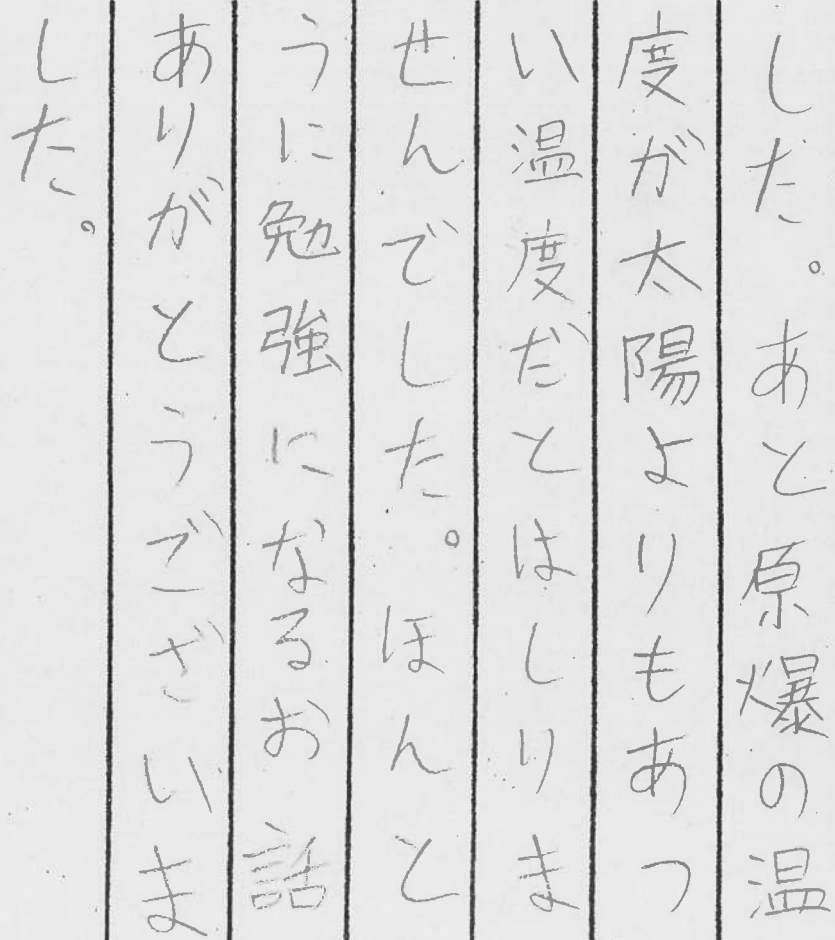 した。あと原爆の温
度が太陽よりもあつ
い温度だとはしりま
せんでした。ほんと
うに勉強になるお話
ありがとうございま
した。